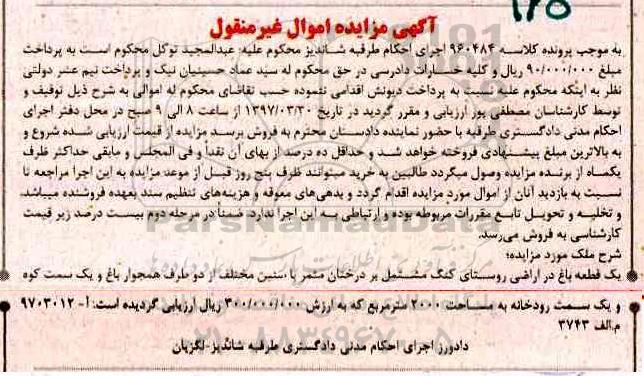 ۱۲۵
آگهی مزایده اموال غیرمنقول
به موجب پرونده کلاسه ۹۶۰۴۸۴ اجرای احکام طرقبه شاندیز محکوم علیه: عبدالمجید توکل محکوم است به پرداخت
مبلغ ۹۰/۰۰۰/۰۰۰ ریال و کلیه خسارات دادرسی در حق محکوم له سید عماد حسینیان نیک و پرداخت نیم عشر دولتی
نظر به اینکه محکوم علیه نسبت به پرداخت دیونش اقدامی ننموده حسب تقاضای محکوم له اموالی به شرح ذیل توقیف و
توسط کارشناسان مصطفی پور ارزیابی و مقرر گردید در تاریخ ۱۳۹۷/۰۳/۳۰ از ساعت ۸ الی ۹ صبح در محل دفتر اجرای
احکام مدنی دادگستری طرقبه با حضور نماینده دادستان محترم به فروش برسد مزایده از قیمت ارزیابی شده شروع و
به بالاترین مبلغ پیشنهادی فروخته خواهد شد و حداقل ده درصد از بهای آن نقداً و فی المجلس و مابقی حداکثر ظرف
یکماه از برنده مزایده وصول میگردد طالبین به خرید میتوانند ظرف پنج روز قبل از موعد مزایده به این اجرا مراجعه تا
نسبت به بازدید آنان از اموال مورد مزایده اقدام گردد و بدهی‌های معوقه و هزینه‌های تنظیم سند بعهده فروشنده میباشد
و تخلیه و تحویل تابع مقررات مربوطه بوده و ارتباطی به این اجرا ندارد. ضمناً در مرحله دوم بیست درصد زیر قیمت
کارشناسی به فروش می‌رسد.
شرح ملک مورد مزایده؛
یک قطعه باغ در اراضی روستای کنگ مشتمل بر درختان مثمر با سنین مختلف از دو طرف همجوار باغ و یک سمت کوه
و یک سمت رودخانه به مساحت ۲۰۰۰ مترمربع که به ارزش ۳۰۰/۰۰۰/۰۰۰ ریال ارزیابی گردیده است: آ- ۹۷۰۳۰۱۲
م.الف ۳۷۴۳
دادورز اجرای احکام مدنی دادگستری طرقبه شاندیز-لگزیان
ParsNamadData
۰۲۱-۸۸۳۴۹۶۷۰-۵